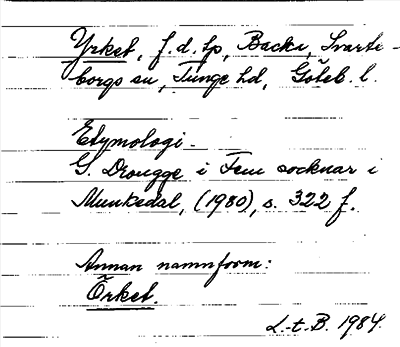 Yrket, f.d. tp, Backa, Svarte-
borgs sn, Tunge hd, Göteb. l.
Etymologi
G. Drougge i Fem socknar i
Munkedal, (1980), s. 322 f.
Annan namnform:
Örket.
L-t. B. 1984.